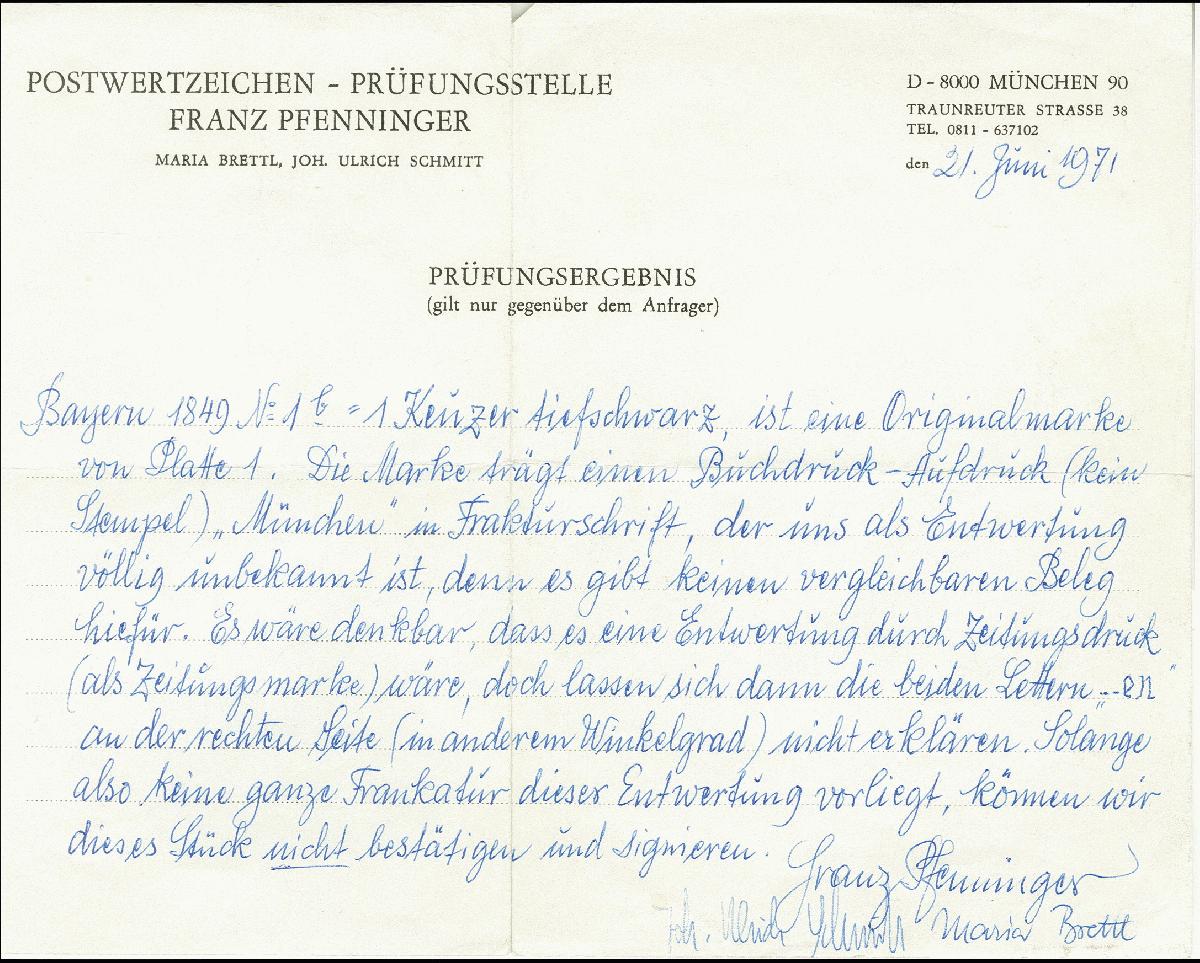 POSTWERTZEICHEN - PRÜFUNGSSTELLE
FRANZ PFENNINGER
MARIA BRETTL, JOH. ULRICH SCHMITT
D - 8000 MÜNCHEN 90
TRAUNREUTER STRASSE 38
TEL. 0811 - 637102
den 21. Juni 1971
PRÜFUNGSERGEBNIS
(gilt nur gegenüber dem Anfrager)
Bayern 1849 № 1 b = 1 Keuzer tiefschwarz, ist eine Originalmarke
von Platte 1. Die Marke trägt einen Buchdruck-Aufdruck (kein
Stempel) „München" in Frakturschrift, der uns als Entwertung
völlig unbekannt ist, denn es gibt keinen vergleichbaren Beleg
hiefür. Es wäre denkbar, dass es eine Entwertung durch Zeitungsdruck
(als Zeitungsmarke) wäre, doch lassen sich dann die beiden Lettern „--en"
an der rechten Seite (in anderem Winkelgrad) nicht erklären. Solange
also keine ganze Frankatur dieser Entwertung vorliegt, können wir
dieses Stück nicht bestätigen und signieren.
Franz Pfenninger
Joh. Ulrich Schmitt Maria Brettl